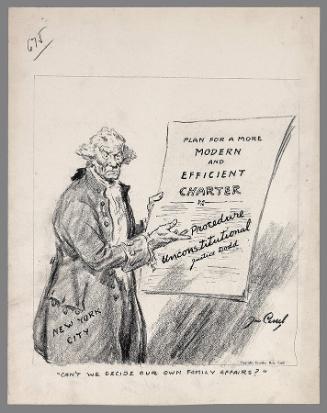 675
PLAN FOR A MORE
MODERN
AND
EFFICIENT
CHARTER
Procedure
Unconstitutional
Justice Dodd
NEW YORK
CITY
"CAN'T WE DECIDE OUR OWN FAMILY AFFAIRS?"